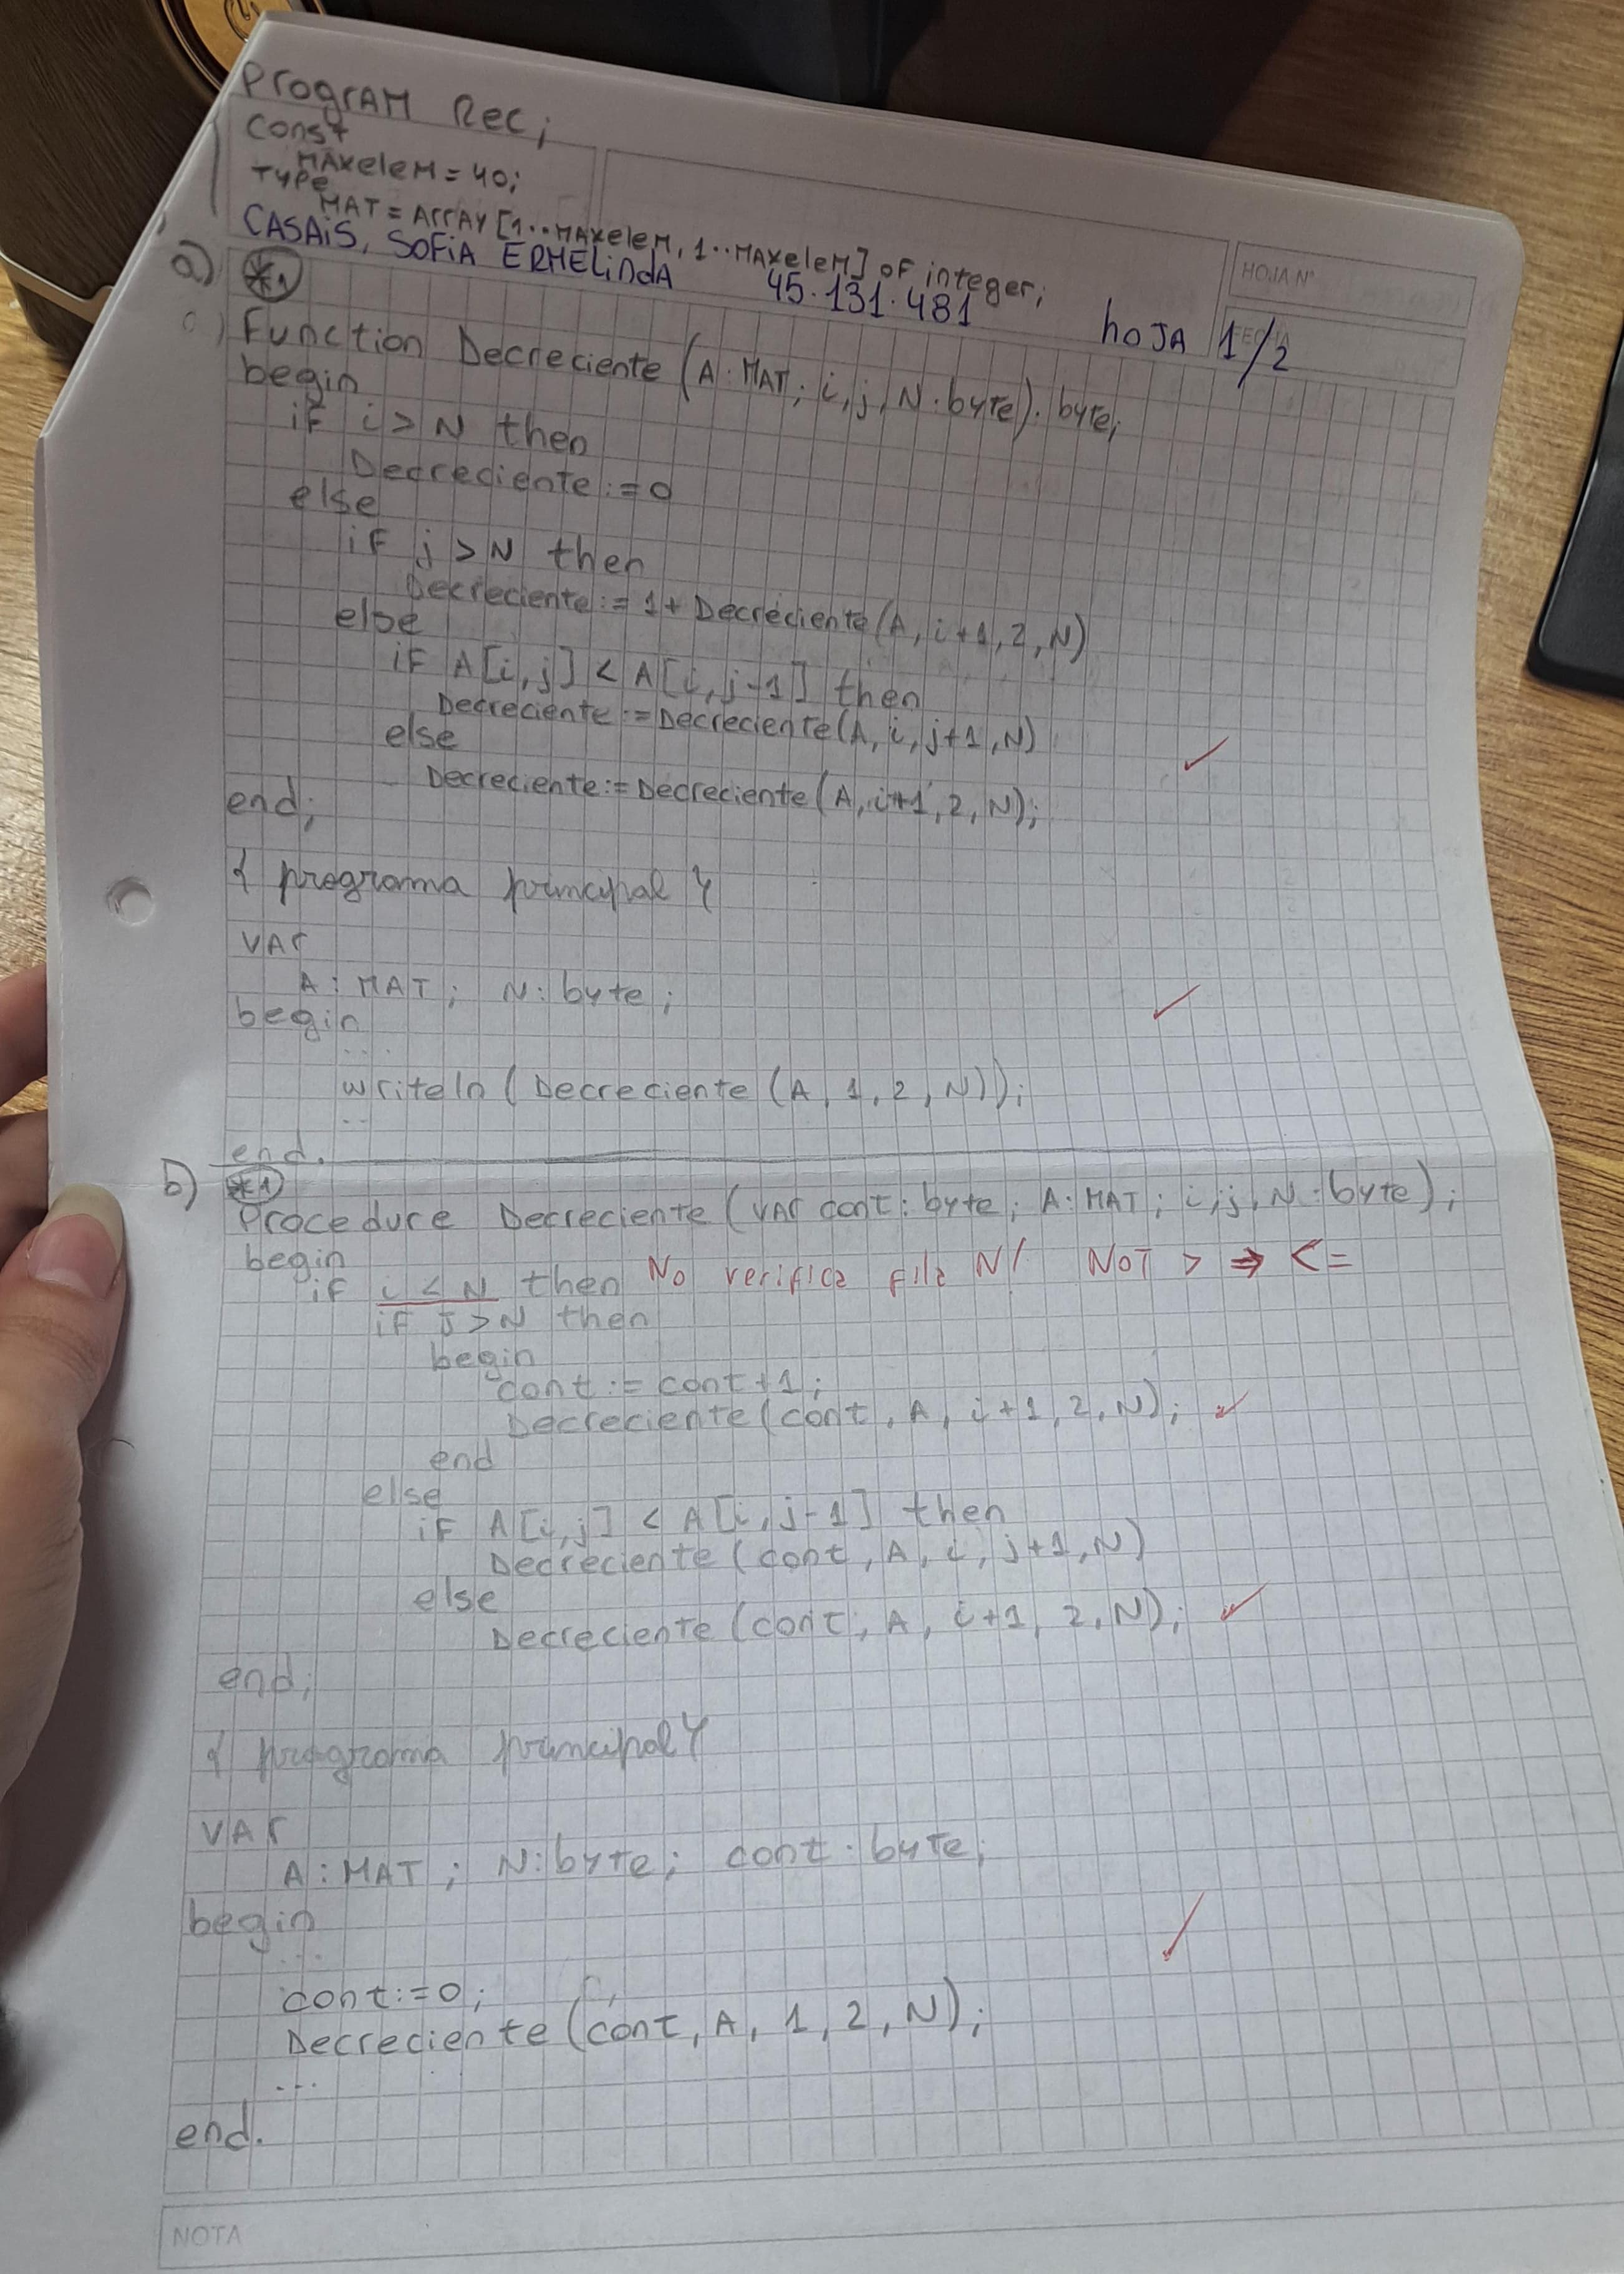 PrograM Rec;
Const
MAxeleM = 40;
TYPe
MAT = ArrAY [1..MAxeleM, 1..MAxeleM] of integer;
CASAiS, SOFiA ERMELindA 45.131.481 hoJA 1/2
HOJA N°
FECHA
a) *1
Function Decreciente (A: MAT; i,j,N:byte): byte;
begin
if i > N then
Decreciente := 0
else
if j > N then
Decreciente := 1 + Decreciente(A, i+1, 2, N)
else
if A[i,j] < A[i,j-1] then
Decreciente := Decreciente(A, i, j+1, N)
else
Decreciente := Decreciente(A, i+1, 2, N);
end;
{ programa principal }
VAr
A: MAT; N: byte;
begin
...
writeln (Decreciente (A, 1, 2, N));
..
end.
b) *1
Procedure Decreciente (VAr cont: byte; A: MAT; i,j,N: byte);
begin
if i < N then No verifica fila N! NOT > ⇒ <=
if j > N then
begin
cont := cont + 1;
Decreciente (cont, A, i+1, 2, N); ✓
end
else
if A[i,j] < A[i,j-1] then
Decreciente (cont, A, i, j+1, N)
else
Decreciente (cont, A, i+1, 2, N); ✓
end;
{ programa principal }
VAr
A: MAT; N: byte; cont: byte;
begin
...
cont := 0;
Decreciente (cont, A, 1, 2, N);
...
end.
NOTA